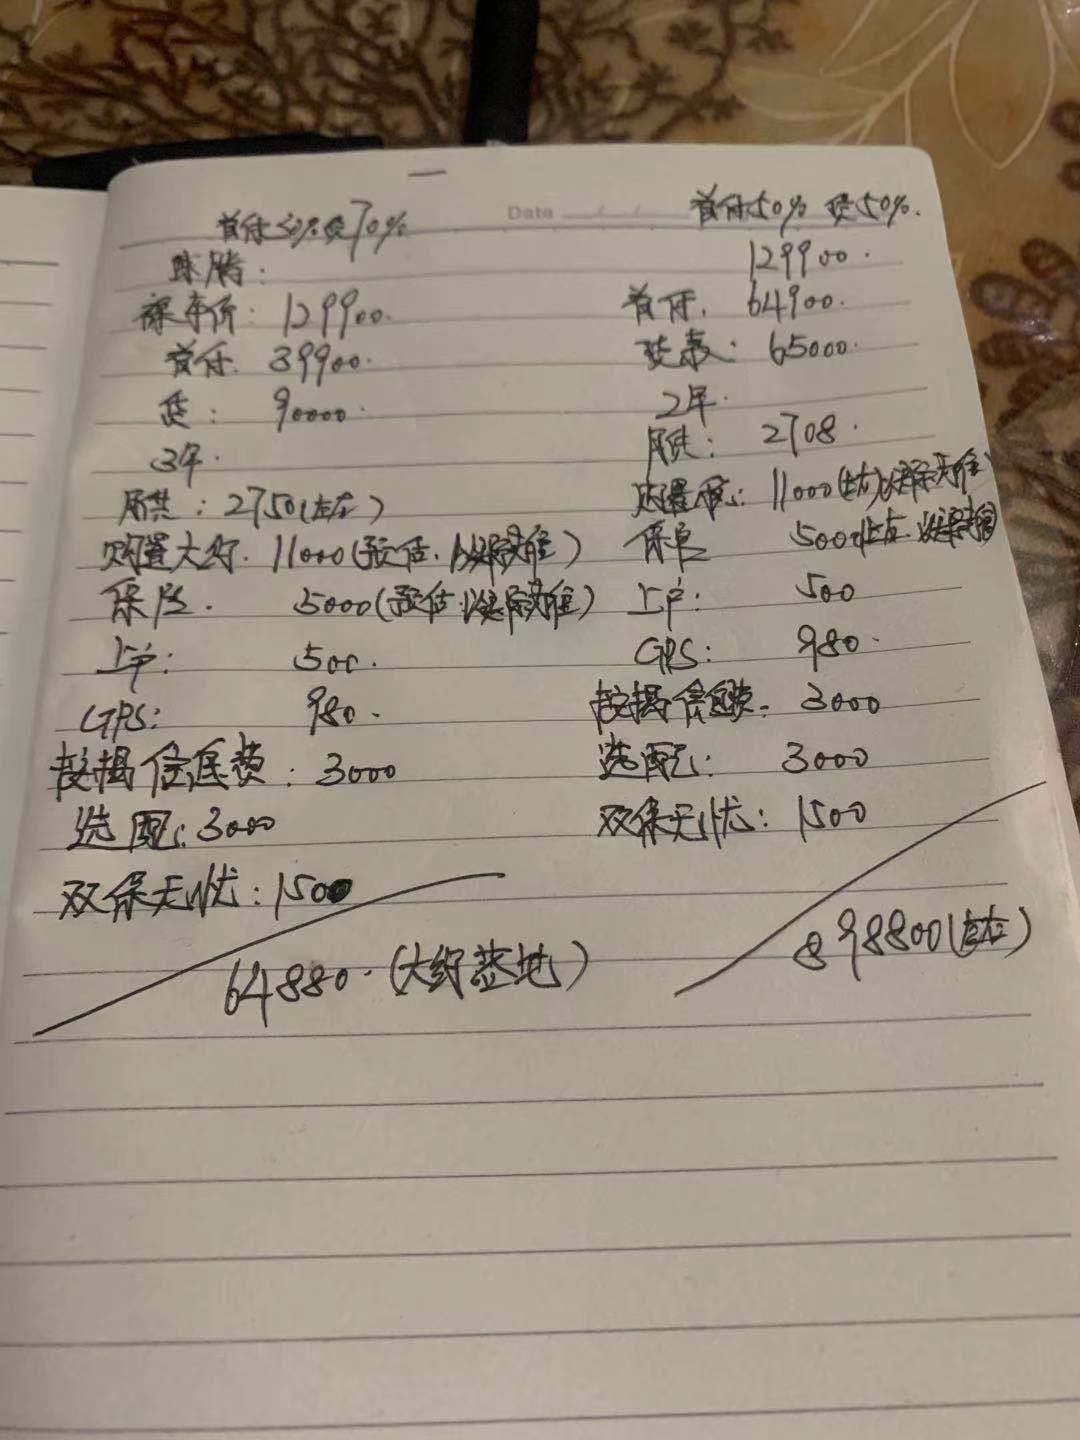 Date
首付30%贷70%
速腾:
裸车价: 129900.
首付. 39900.
贷: 90000.
3年.
月供: 2750(左右)
购置大约. 11000(预估.以实际为准)
保险. 5000(预估.以实际为准)
上户: 500.
GPS: 980.
按揭信息费: 3000
选配: 3000
双保无忧: 1500
64880.(大约落地)
首付50% 贷50%.
129900.
首付. 64900.
贷款: 65000.
2年.
月供: 2708.
购置税: 11000(左右)以实际为准
保险 5000左右
上户: 500
GPS: 980.
按揭信息费. 3000
选配: 3000
双保无忧: 1500
898800(左右)